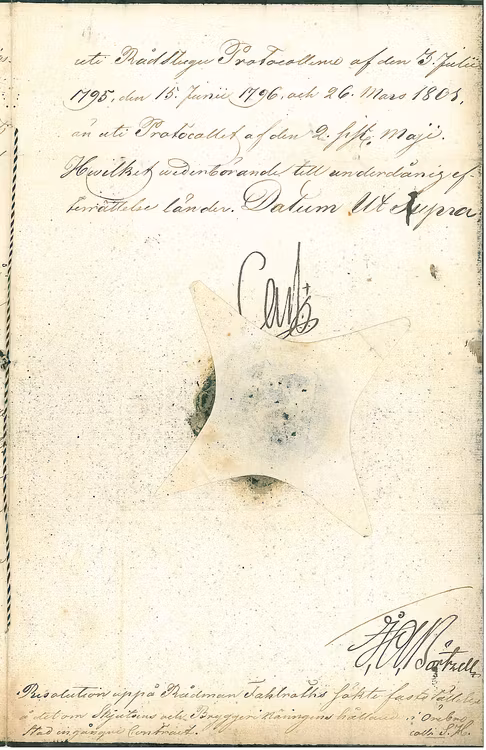 uti Rådstugu Protocollerne af den 3. Julii
1795, den 15. Junii 1796, och 26. Mars 1803,
än uti Protocollet af den 2. sistl. Maji.
Hwilket wederbörande till underdånig ef-
terrättelse länder. Datum Ut Supra
Carl
Resolution uppå Rådman Fahlroths sökte fastställelse
å det om Skjutsens och Bryggeri näringens hållande i Örebro
Stad ingångne Contract.